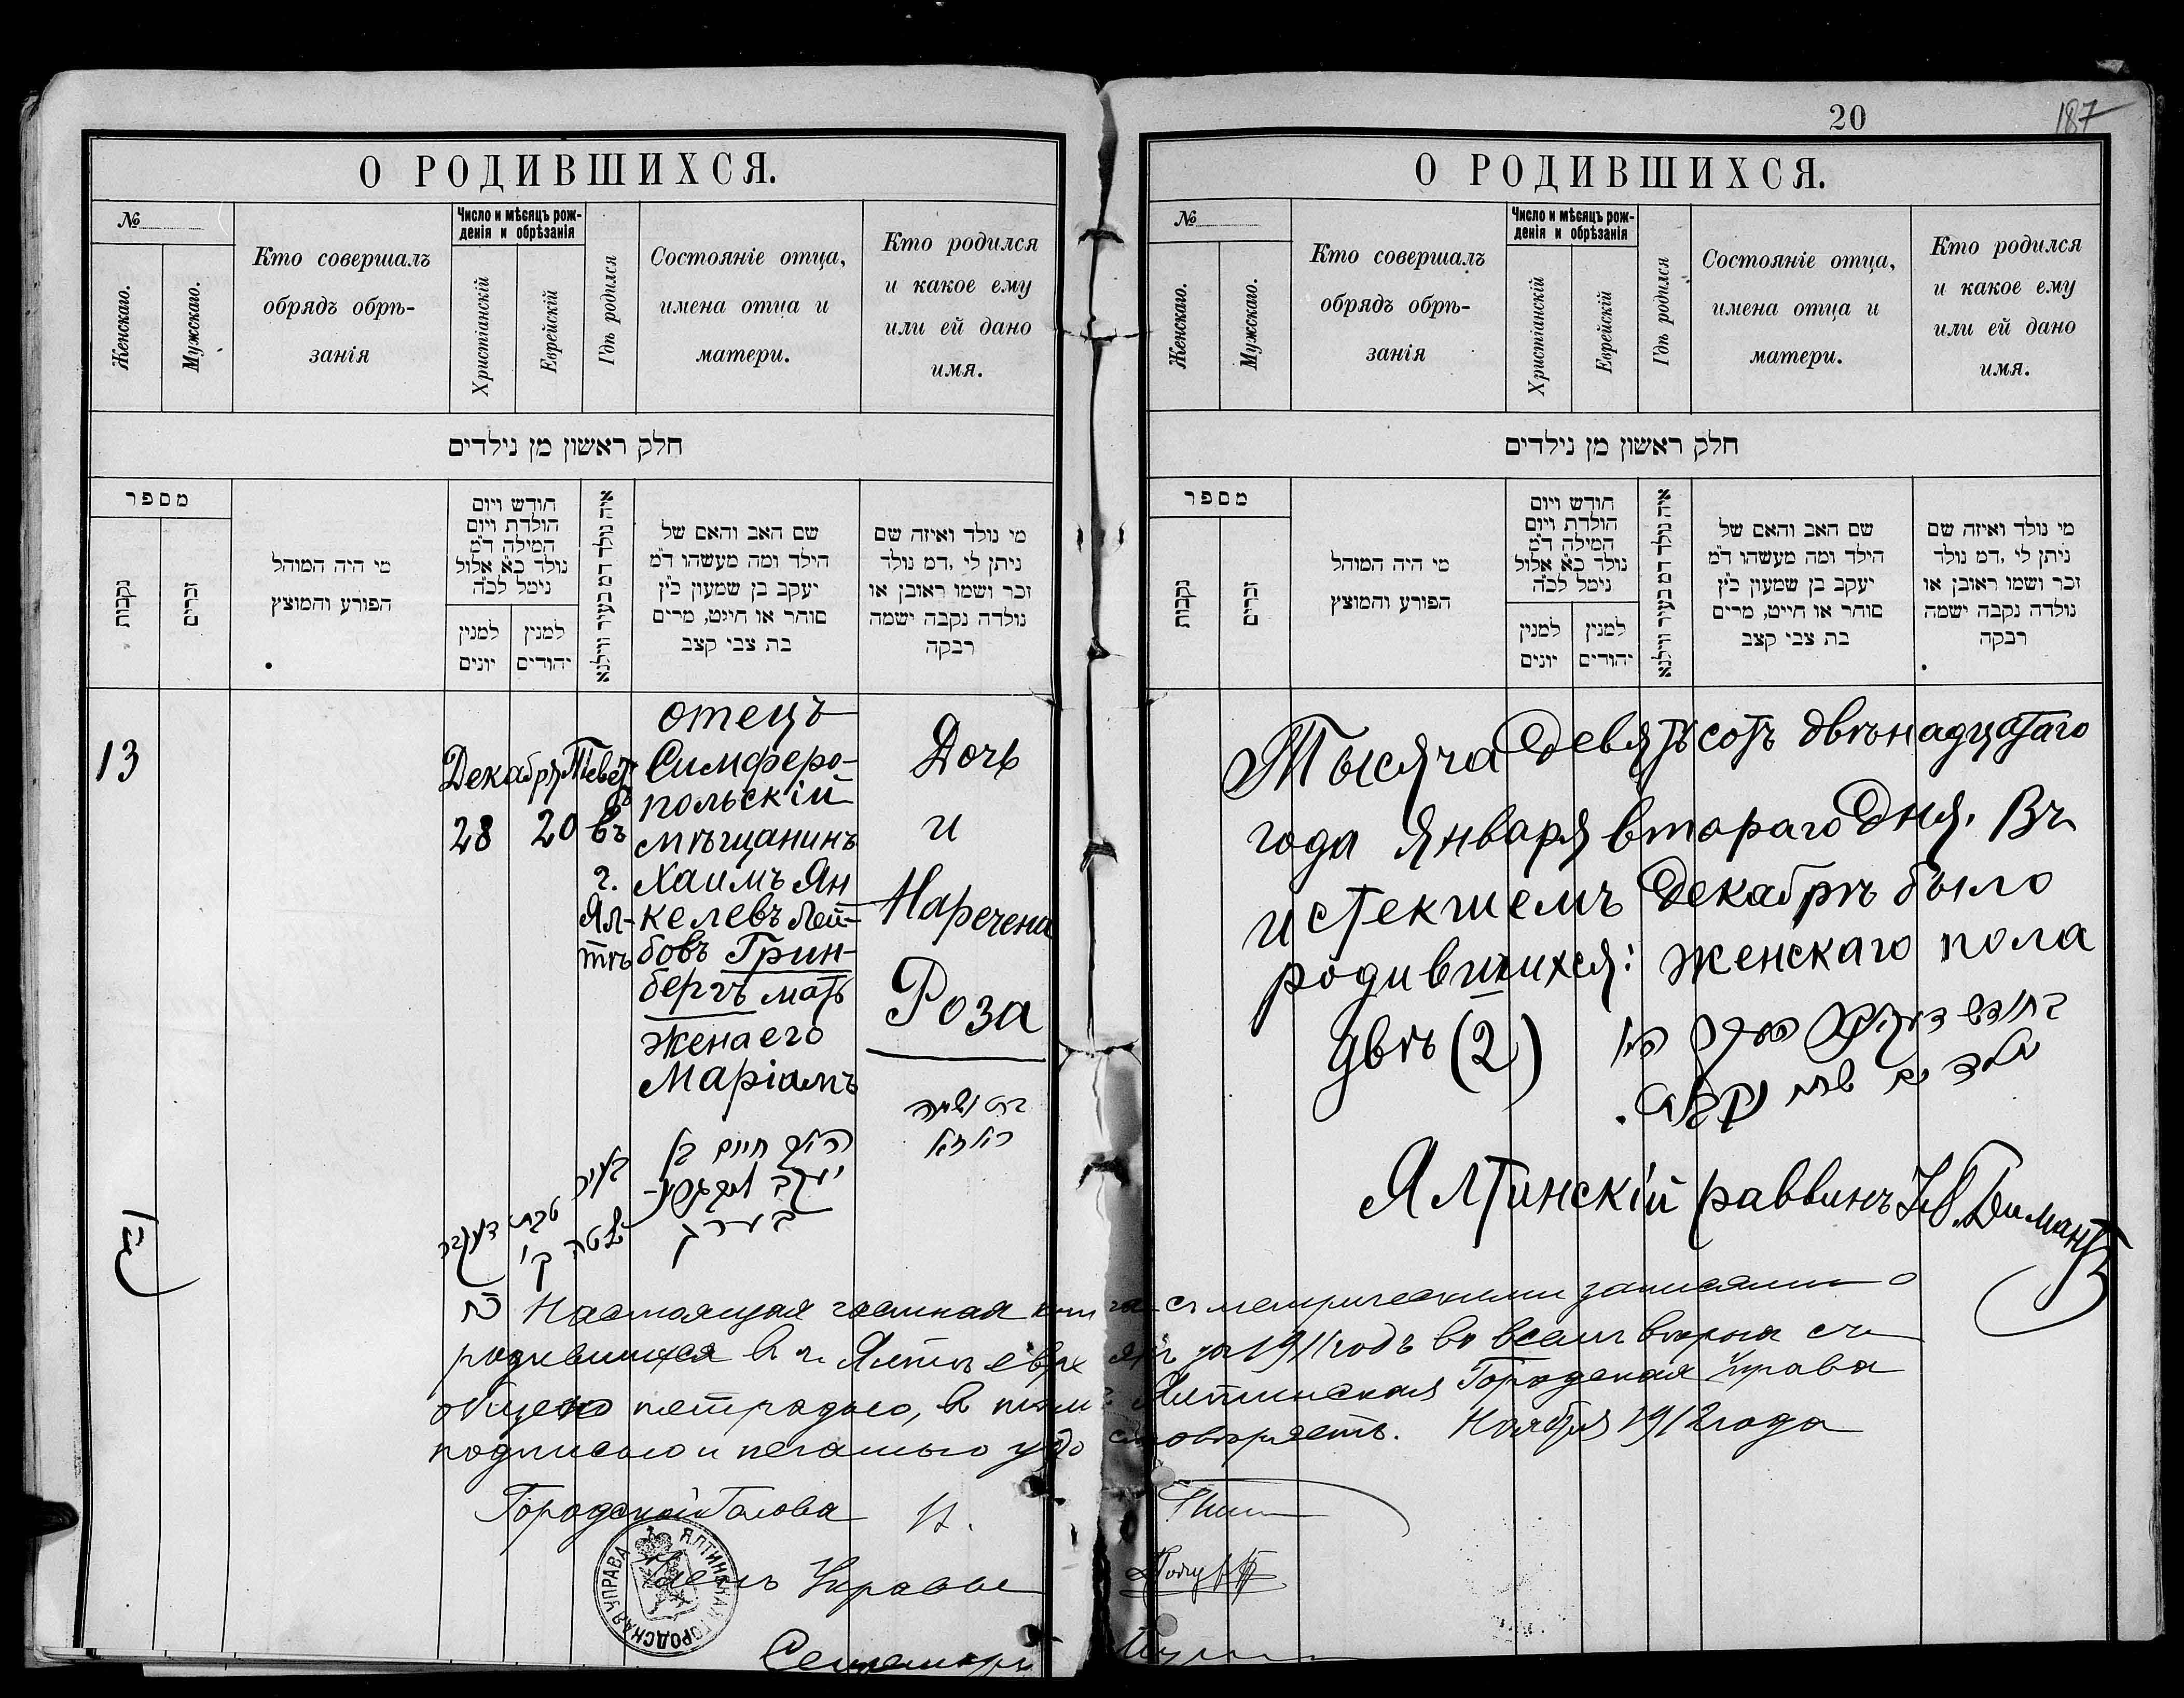 О РОДИВШИХСЯ.
№
Женскаго.
Мужскаго.
Кто совершалъ
обрядъ обрѣ-
занія
Число и мѣсяцъ рож-
денія и обрѣзанія
Христіанскій
Еврейскій
Гдѣ родился
Состояніе отца,
имена отца и
матери.
Кто родился
и какое ему
или ей дано
имя.
חלק ראשון מן נילדים
מספר
נקבות
זכרים
מי היה המוהל
הפורע והמוצץ
חודש ויום
הולדת ויום
המילה ד״מ
נולד כ״א אלול
נימל לכ״ה
למנין
יונים
למנין
יהודים
איה נולד דמ בעיר ווילנא
שם האב והאם של
הילד ומה מעשהו ד״מ
יעקב בן שמעון כ״ץ
סוחר או חייט, מרים
בת צבי קצב
מי נולד ואיזה שם
ניתן לי ,דמ נולד
זכר ושמו ראובן או
נולדה נקבה ישמה
רבקה
13
Декабря
28
Тевет
20
въ
г.
Ял-
тѣ
отецъ
Симферо-
польскій
мѣщанинъ
Хаимъ Ян
келевъ Лей-
бовъ Грин-
бергъ мать
жена его
Маріамъ
Дочь
и
Наречена
Роза
חיים בן
יעקב
בעיר
טבת
כ׳
כח
20
187
О РОДИВШИХСЯ.
№
Женскаго.
Мужскаго.
Кто совершалъ
обрядъ обрѣ-
занія
Число и мѣсяцъ рож-
денія и обрѣзанія
Христіанскій
Еврейскій
Гдѣ родился
Состояніе отца,
имена отца и
матери.
Кто родился
и какое ему
или ей дано
имя.
חלק ראשון מן נילדים
מספר
נקבות
זכרים
מי היה המוהל
הפורע והמוצץ
חודש ויום
הולדת ויום
המילה ד״מ
נולד כ״א אלול
נימל לכ״ה
למנין
יונים
למנין
יהודים
איה נולד דמ בעיר ווילנא
שם האב והאם של
הילד ומה מעשהו ד״מ
יעקב בן שמעון כ״ץ
סוחר או חייט, מרים
בת צבי קצב
מי נולד ואיזה שם
ניתן לי ,דמ נולד
זכר ושמו ראובן או
נולדה נקבה ישמה
רבקה
Тысяча девятьсотъ двѣнадцатаго
года Января втораго дня. Въ
истекшемъ Декабрѣ было
родившихся: женскаго пола
двѣ (2)
בחודש
שתי נקבות.
Ялтинскій раввинъ Димантъ
Настоящая книга съ метрическими записями о
родившихся въ г. Ялтѣ за 1911 годъ во всемъ вѣрна съ
въ Ялтинская Городская Управа
подписью и печатью удостовѣряетъ. Ноября 1912 года
Городской Голова
Членъ Управы
Секретарь
ЯЛТИНСКАЯ ГОРОДСКАЯ УПРАВА